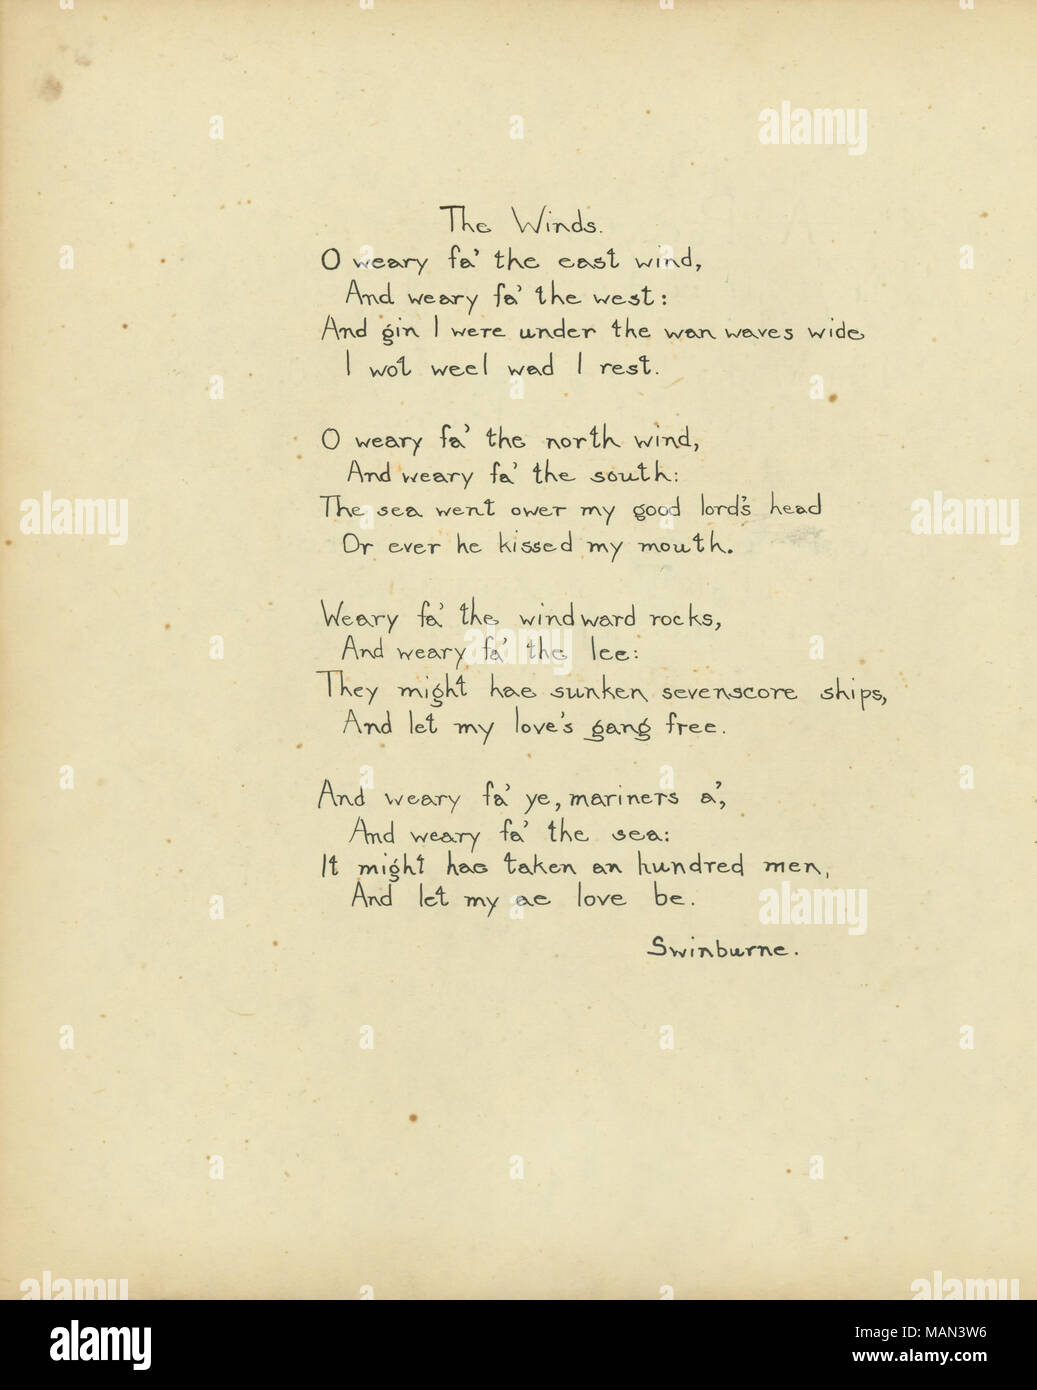 The Winds.
O weary fa' the east wind,
And weary fa' the west:
And gin I were under the wan waves wide
I wot weel wad I rest.
O weary fa' the north wind,
And weary fa' the south:
The sea went ower my good lord's head
Or ever he kissed my mouth.
Weary fa' the windward rocks,
And weary fa' the lee:
They might hae sunken sevenscore ships,
And let my love's gang free.
And weary fa' ye, mariners a',
And weary fa' the sea:
It might hae taken an hundred men,
And let my ae love be.
Swinburne.
alamy
Image ID: MAN3W6
www.alamy.com